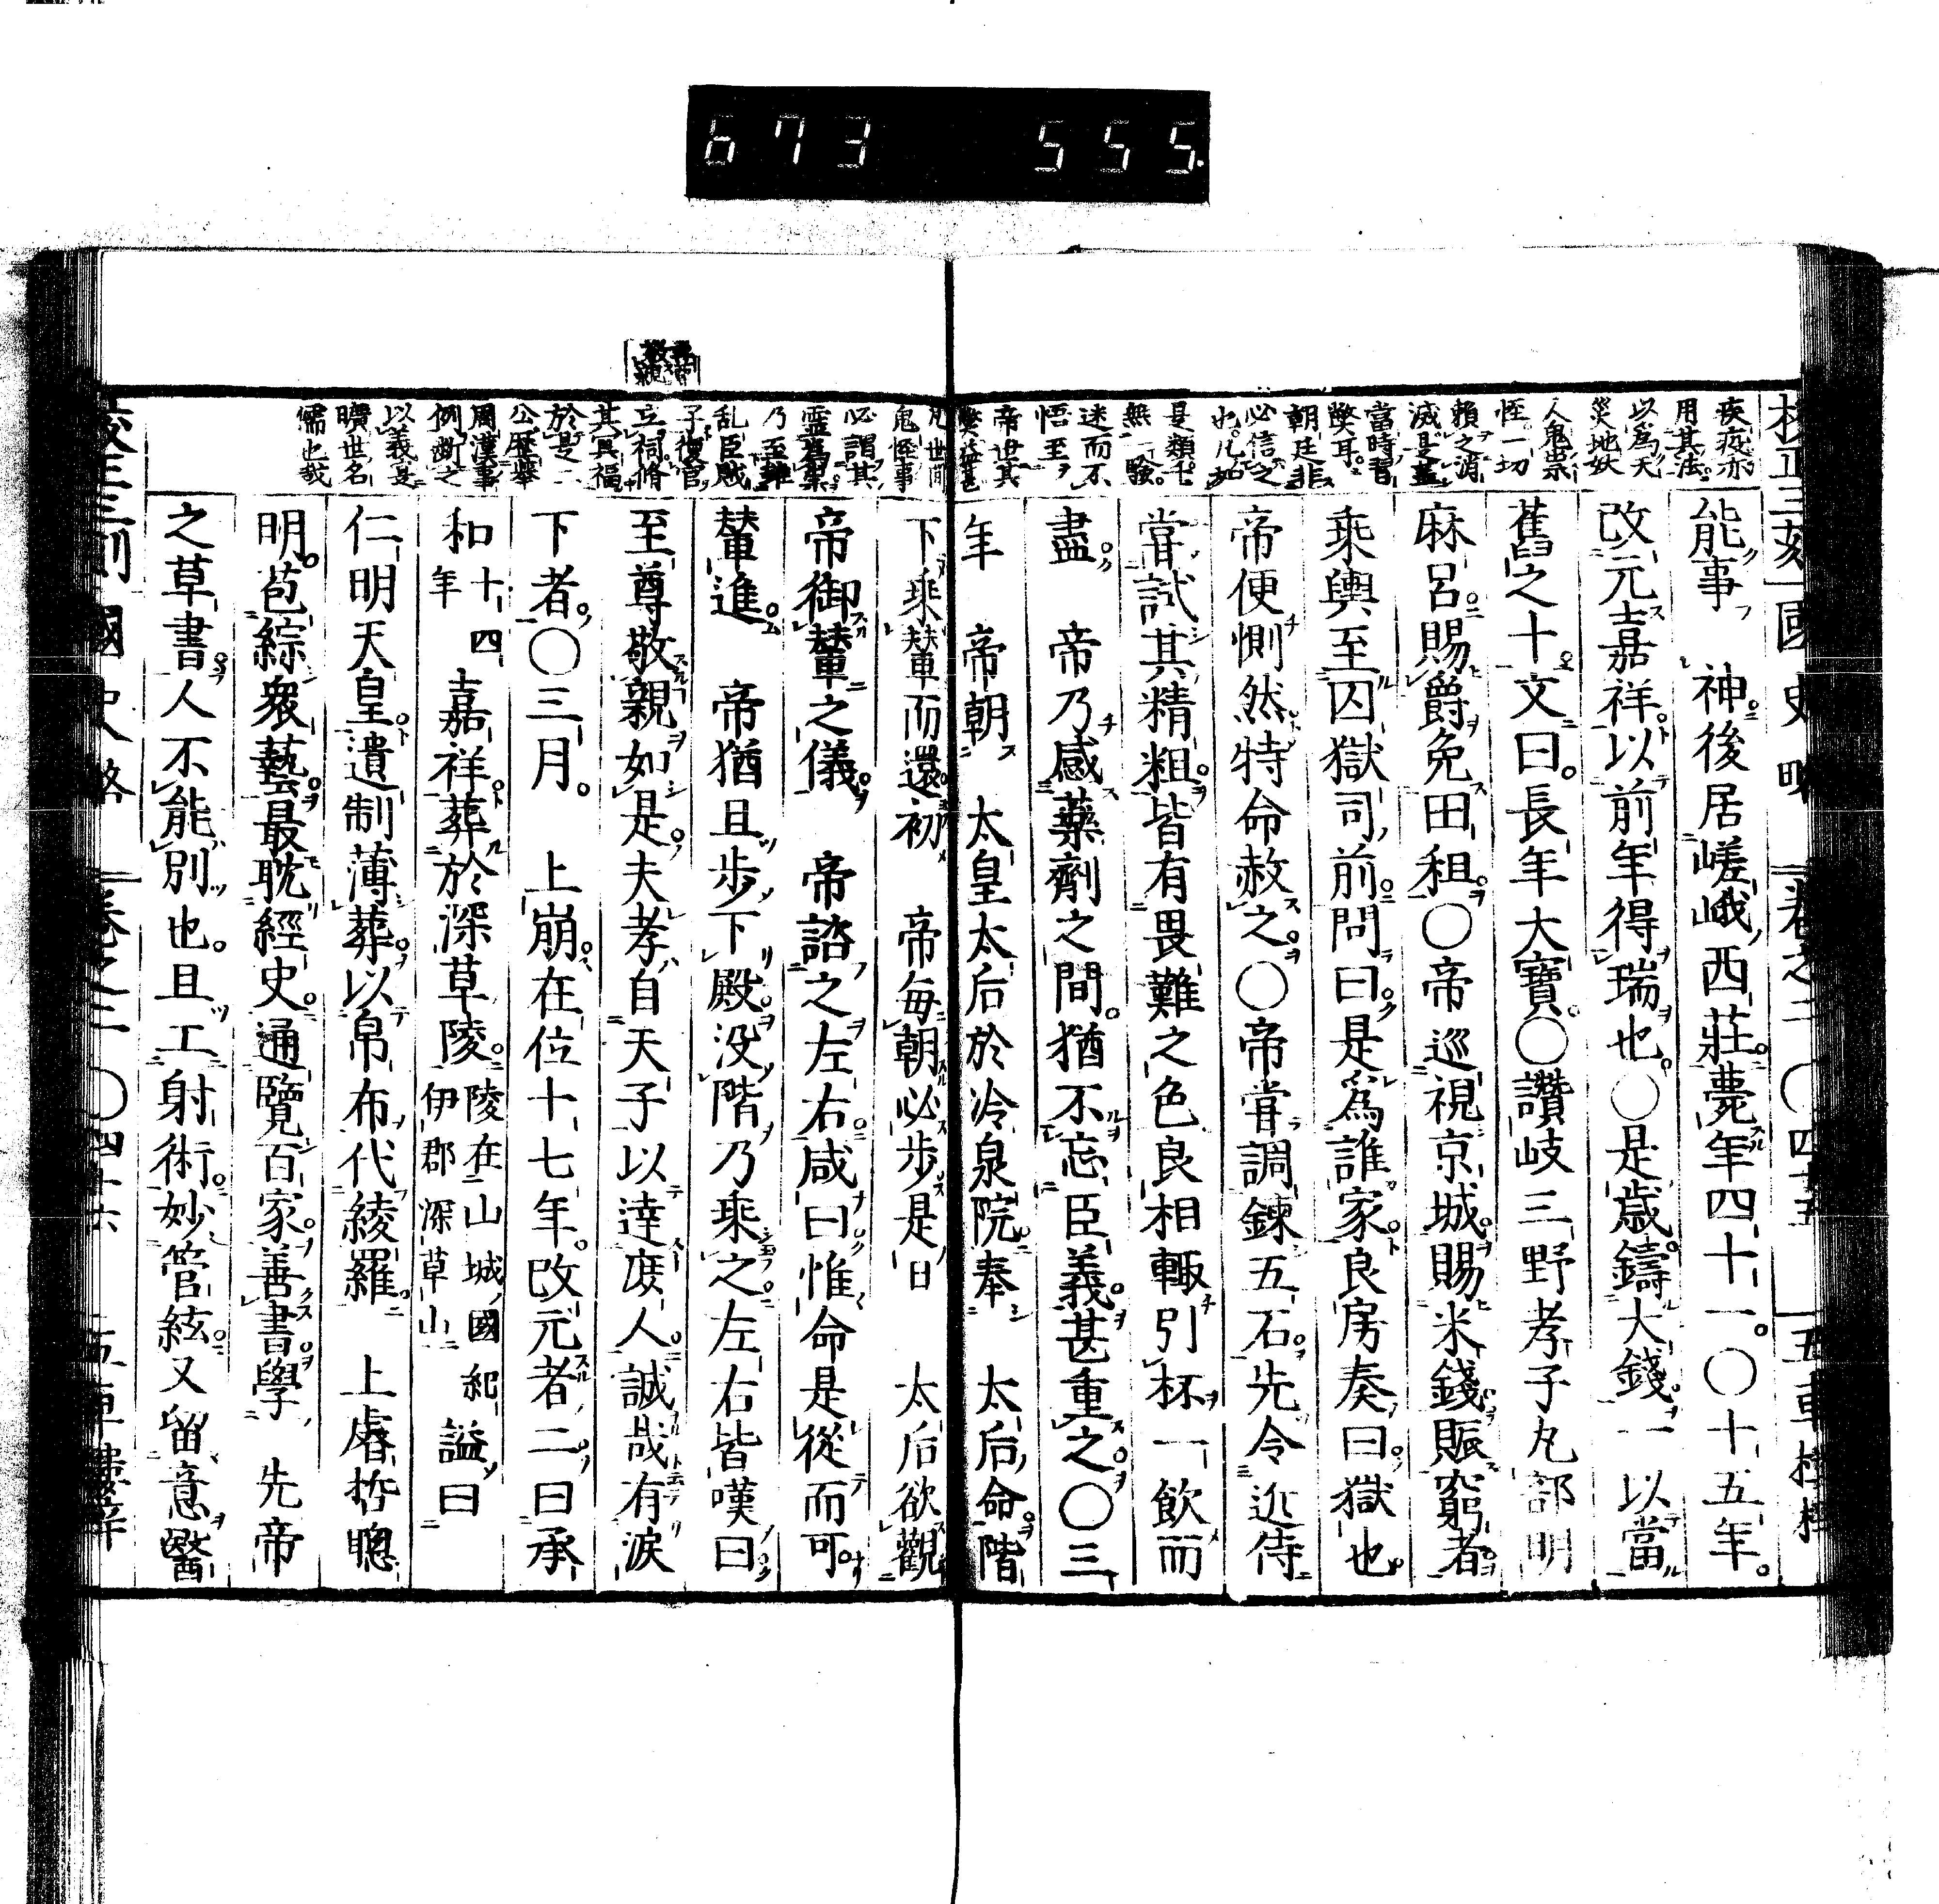 673 555
疾疫亦
用其法
以爲天
災地妖
人鬼祟
恠一切
賴之消
滅是蓋
當時習
弊耳
朝廷非
必信之
也凡如
是類千
無一驗
迷而不
悟至
帝世其
弊益甚
能事 神後居嵯峨西莊薨年四十一〇十五年
改元嘉祥以前年得瑞也〇是歲鑄大錢一以當
舊之十文曰長年大寶〇讚岐三野孝子丸部明
麻呂賜爵免田租〇帝巡視京城賜米錢賑窮者
乘輿至囚獄司前問曰是爲誰家良房奏曰獄也
帝便惻然特命赦之〇帝甞調鍊五石先令近侍
甞試其精粗皆有畏難之色良相輙引杯一飲而
盡 帝乃感藥劑之間猶不忘臣義甚重之〇三
年 帝朝 太皇太后於冷泉院奉 太后命階
凡世間
鬼怪事
必謂其
靈爲祟
乃至雖
乱臣賊
子復官
立祠脩
其冥福
於是二
公歷舉
周漢事
例斷之
以義是
曠世名
儒也哉
下乘輦而還初 帝每朝必步是日 太后欲觀
帝御輦之儀 帝諮之左右咸曰惟命是從而可
輦進 帝猶且步下殿没階乃乘之左右皆嘆曰
至尊敬親如是夫孝自天子以達庶人誠哉有淚
下者〇三月 上崩在位十七年改元者二曰承
和十四年嘉祥葬於深草陵陵在山城國紀伊郡深草山謚曰
仁明天皇遺制薄葬以帛布代綾羅 上睿哲聰
明苞綜衆藝最耽經史通覽百家善書學 先帝
之草書人不能別也且工射術妙管絃又留意醫